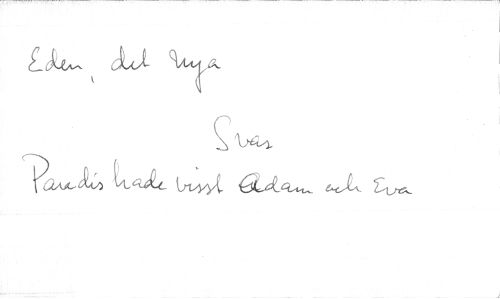 Eden, det nya
Svar
Paradis hade visst Adam och Eva